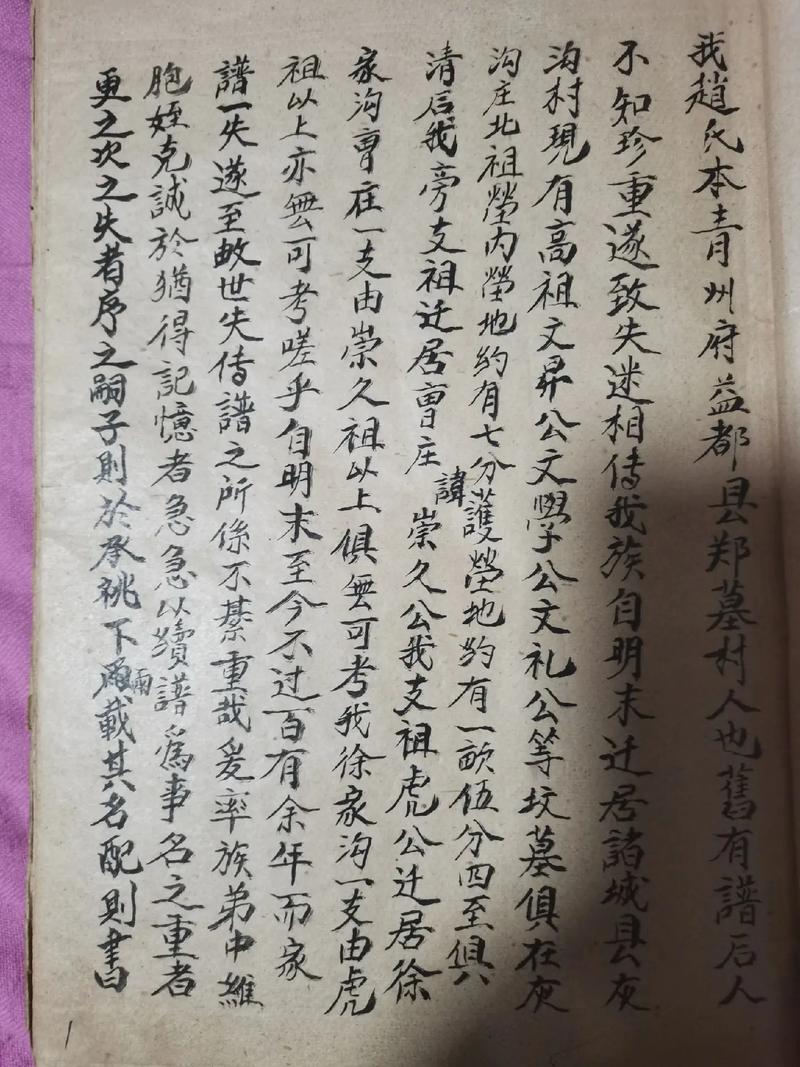 我趙氏本青州府益都县郑墓村人也舊有譜后人
不知珍重遂致失迷相传我族自明末迁居諸城县灰
沟村現有高祖文昇公文學公文礼公等坟墓俱在灰
沟庄北祖塋内塋地約有七分護塋地約有一畝伍分四至俱
清后我旁支祖迁居曹庄諱崇久公我支祖虎公迁居徐
家沟曹庄一支由崇久祖以上俱無可考我徐家沟一支由虎
祖以上亦無可考嗟乎自明末至今不过百有余年而家
譜一失遂至故世失传譜之所係不綦重哉爰率族弟中維
胞姪克誠於猶得記憶者急急以續譜爲事名之重者
更之次之失者序之嗣子則於承祧下两載其名配則書
1